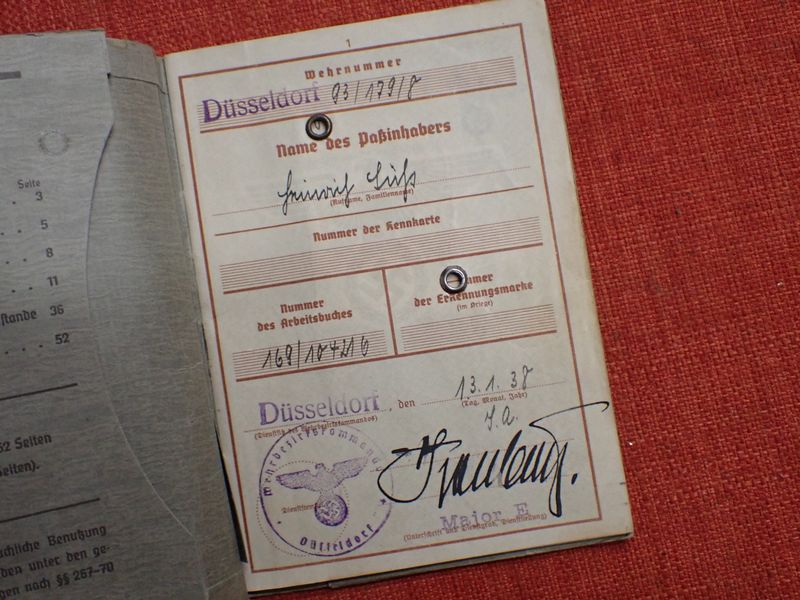 Seite
. . 3
. . 5
. . 8
. . 11
stande 36
. . . 52
52 Seiten
eiten).
chliche Benutzung
den unter den ge-
gen nach §§ 267-70
1
Wehrnummer
Düsseldorf 93/179/8
Name des Paßinhabers
Heinrich Süß
(Rufname, Familienname)
Nummer der Kennkarte
Nummer
des Arbeitsbuches
169/104216
mmer
der Erkennungsmarke
(im Kriege)
Düsseldorf, den 13.1.38
(Dienstsitz des Wehrbezirkskommandos)
(Tag, Monat, Jahr)
J.A.
Wehrbezirkskommando
Düsseldorf
Major E
(Unterschrift und Dienstgrad, Dienststellung)